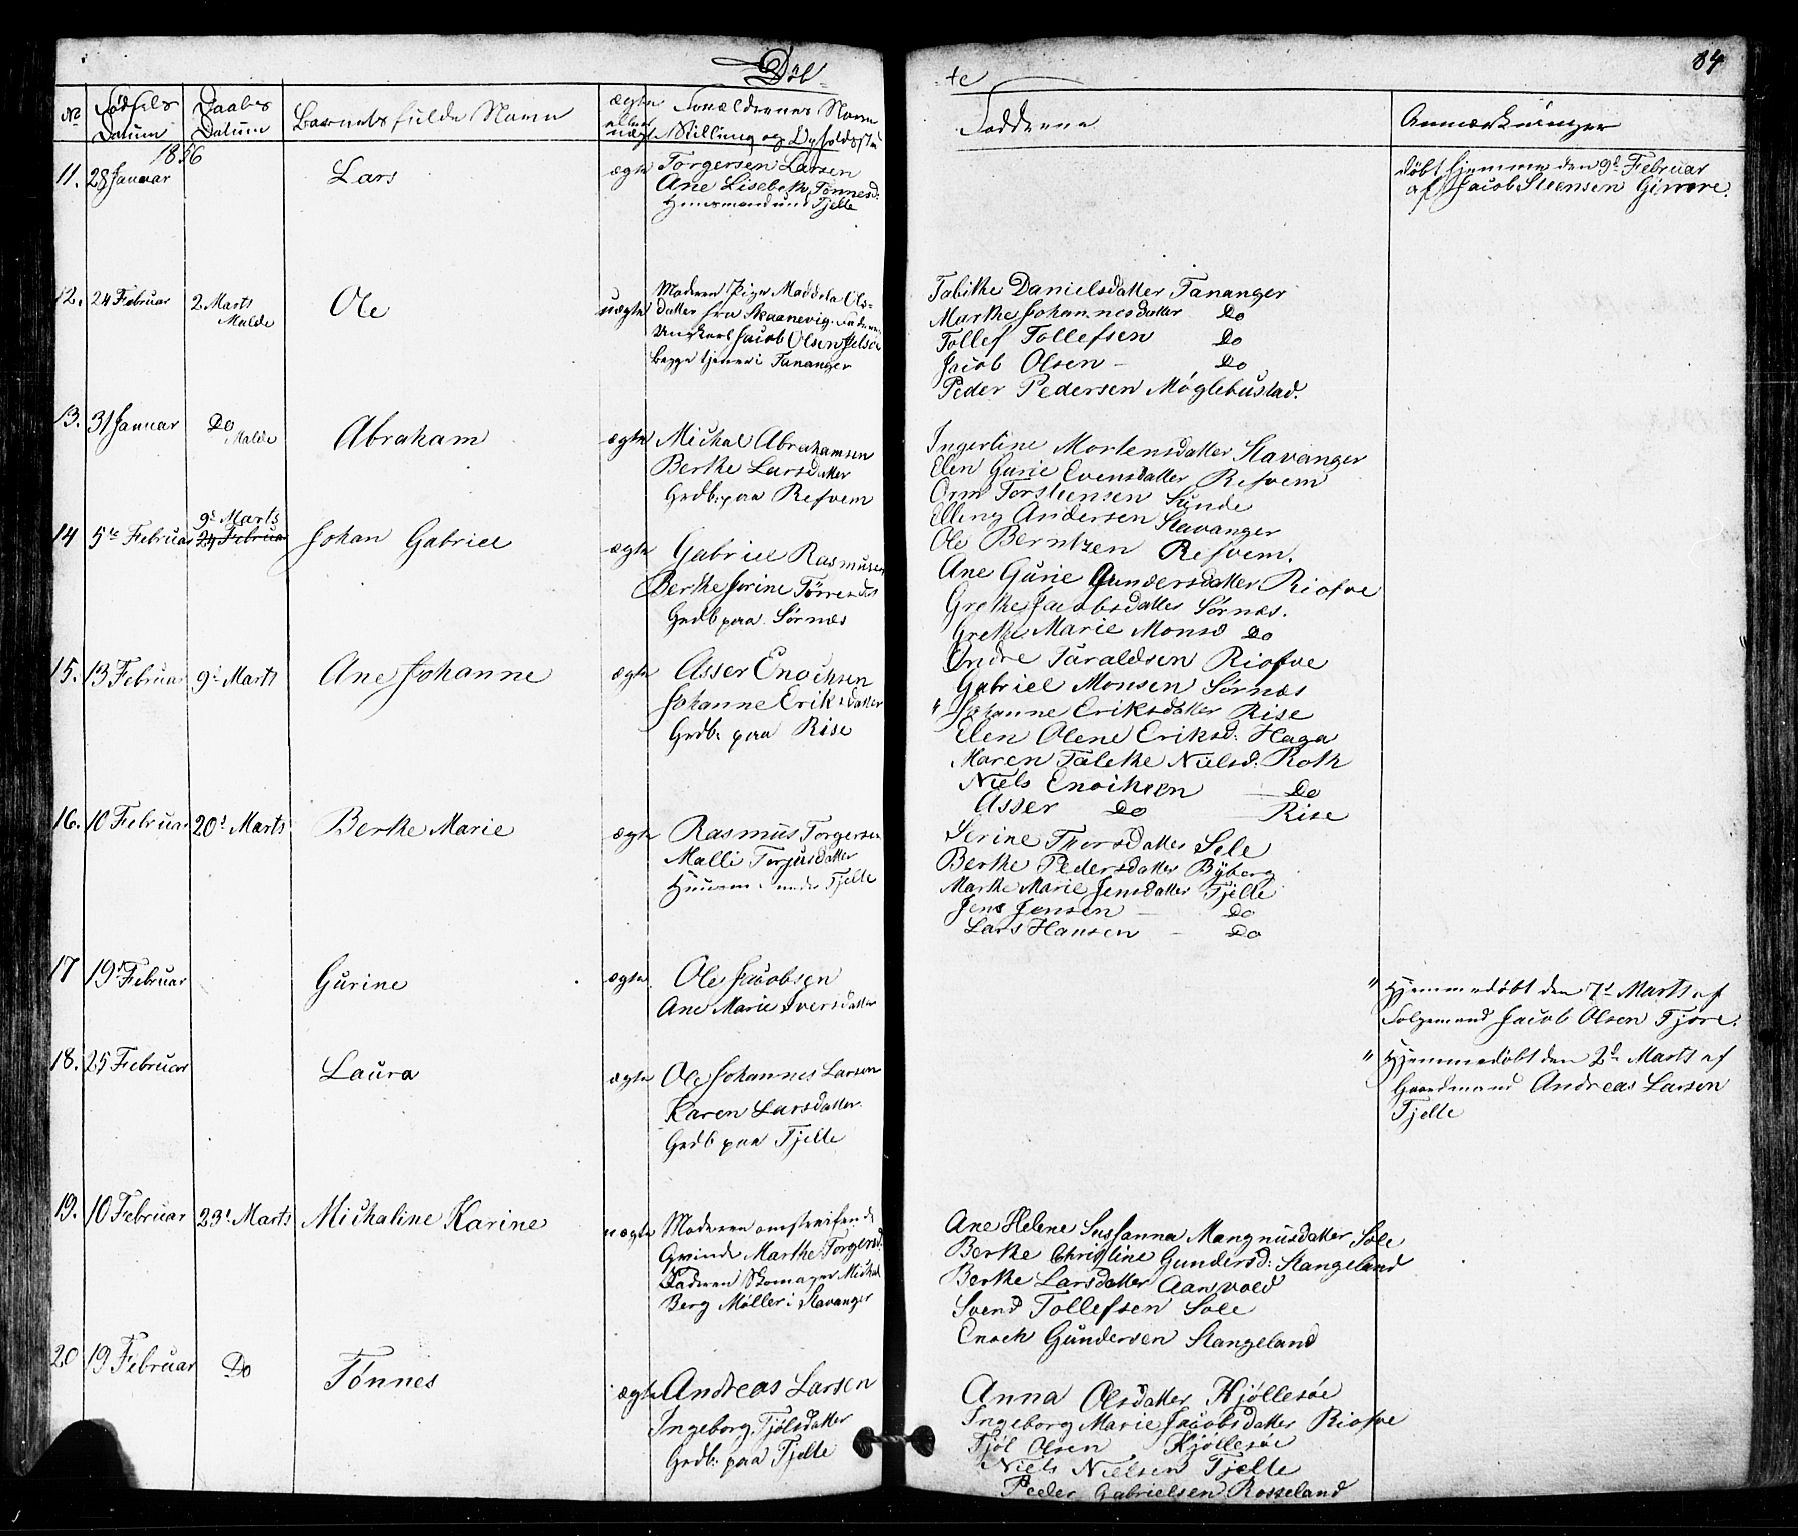 Døb-
te
84
No
Fødsels Datum
Daabs Datum
Barnets fulde Navn
ægte eller uægt
Forældrenes Navn
Stilling og Opholdsst
Faddrene
Anmærkninger
1856
11. 28 Januar Lars ægte Torgersen Larsen
Ane Lisebeth Tønnesd:
Huusmand und Tjelte
døbt hjemme den 9d Februar
af Jacob Steensen
12. 24 Februar 2 Marts Malde Ole uægte
Moderen Pige Maddela Ols-
datter fra Skaanevig. Faderen
Ungkarl Jacob Olsen
begge tjener i Tananger
Tabithe Danielsdatter Tananger
Marthe Johannesdatter Do
Tollef Tollefsen Do
Jacob Olsen - Do
Peder Pedersen Møglebustad.
13. 31 Januar Do Malde Abraham ægte Michal Abrahamsen
Berthe Larsdatter
Grdb: paa Refvem
Ingerline Mortensdatter Stavanger
Elen Gurie Evensdatter Refvem
Orm Torsteensen Sunde
Elling Andersen Stavanger
Ole Berntzen Refvem.
14 5te Februar 9d Marts 24 Februar Johan Gabriel ægte Gabriel Rasmusen
Berthe Serine Tørresdat
Grdb paa Sørnæs
Ane Gurie Gundersdatter Riofve
Grethe Jacobsdatter Sørnæs.
Grethe Marie Monsd Do
Endre Taraldsen Riofve
Gabriel Monsen Sørnæs
15. 13 Februar 9d Marts Ane Johanne ægte Asser Enochsen
Johanne Eriksdatter
Grdb: paa Rise
" Johanne Eriksdatter Rise
Elen Olene Eriksd: Haga
Maren Talethe Nielsd: Roth
Niels Enochsen Do
Asser Do Rise
16. 10 Februar 20d Marts Berthe Marie ægte Rasmus Torgersen
Malli Torjusdatter
Huusm: under Tjelte
Serine Thorsdatter Sele
Berthe Pedersdatter Byberg
Marthe Marie Jensdatter Tjelte
Jens Jensen - Do
Lars Hansen - Do
17 19d Februar Gurine ægte Ole Jacobsen
Ane Marie Iversdatter
" Hjemmedøbt den 7d Marts af
Jacob Olsen Tjore.
18. 25 Februar Laura ægte Ole Johannes Larsen
Karen Larsdatter.
Grdb paa Tjelte
" Hjemmedøbt den 2d Marts af
Gaardmand Andreas Larsen
Tjelte
19. 10 Februar 23d Marts Michaline Karine uægte Moderen omstreifende
Qvinde Marthe Torgersd:
Faderen Skomager Michal
Berg Møller i Stavanger
Ane Helene Susanna Mangnusdatter Sole
Berthe Christine Gundersd: Stangeland
Berthe Larsdatter Aanvold
Svend Tollefsen Sole
Enoch Gundersen Stangeland
20 19 Februar Do Tønnes ægte Andreas Larsen
Ingeborg Tjølsdatter
Grdb: paa Tjelte
Anna Olsdatter Kjøllesøe
Ingeborg Marie Jacobsdatter Riofve
Tjøl Olsen Kjøllesøe
Niels Nielsen Tjelte
Peder Gabrielsen Rosseland